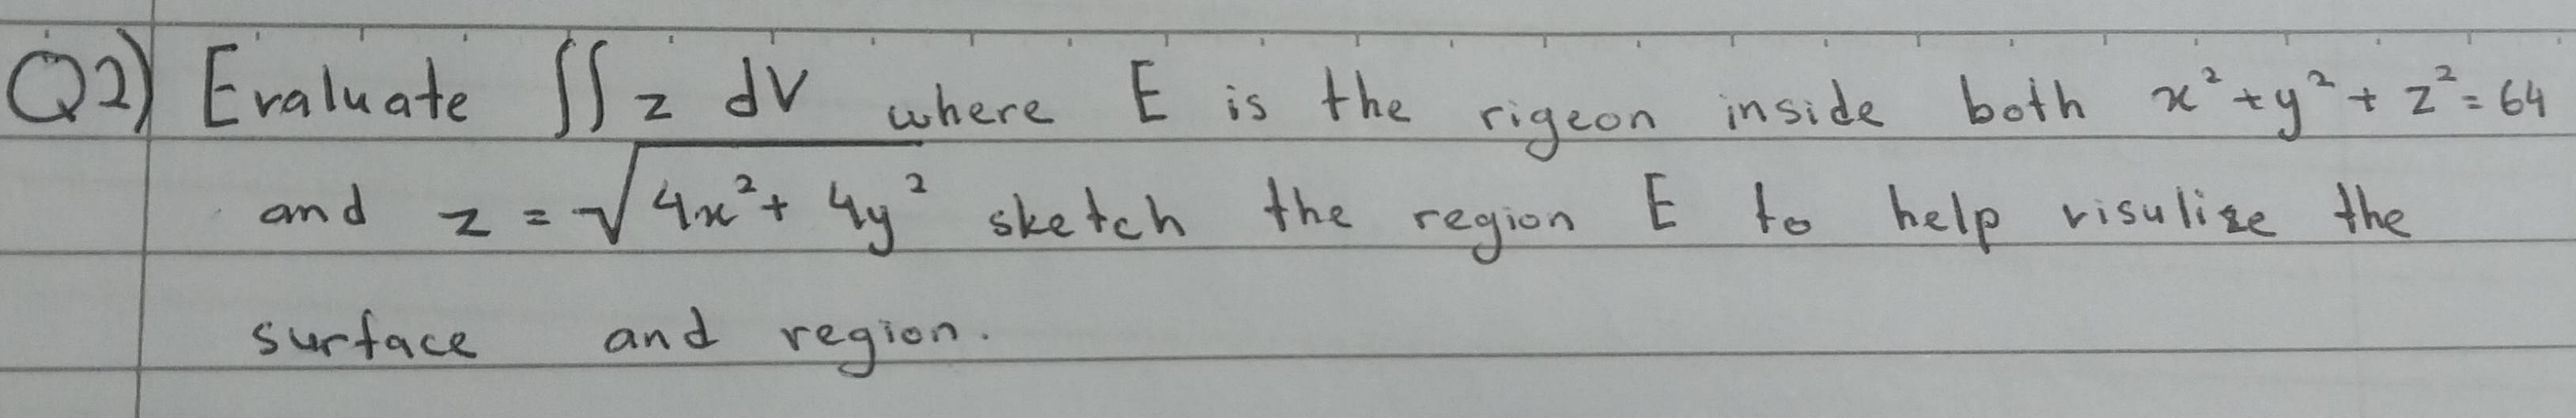 Q2) Evaluate ∬ z dV where E is the rigeon inside both x² + y² + z² = 64
and z = √4x² + 4y² sketch the region E to help visulize the
surface and region.